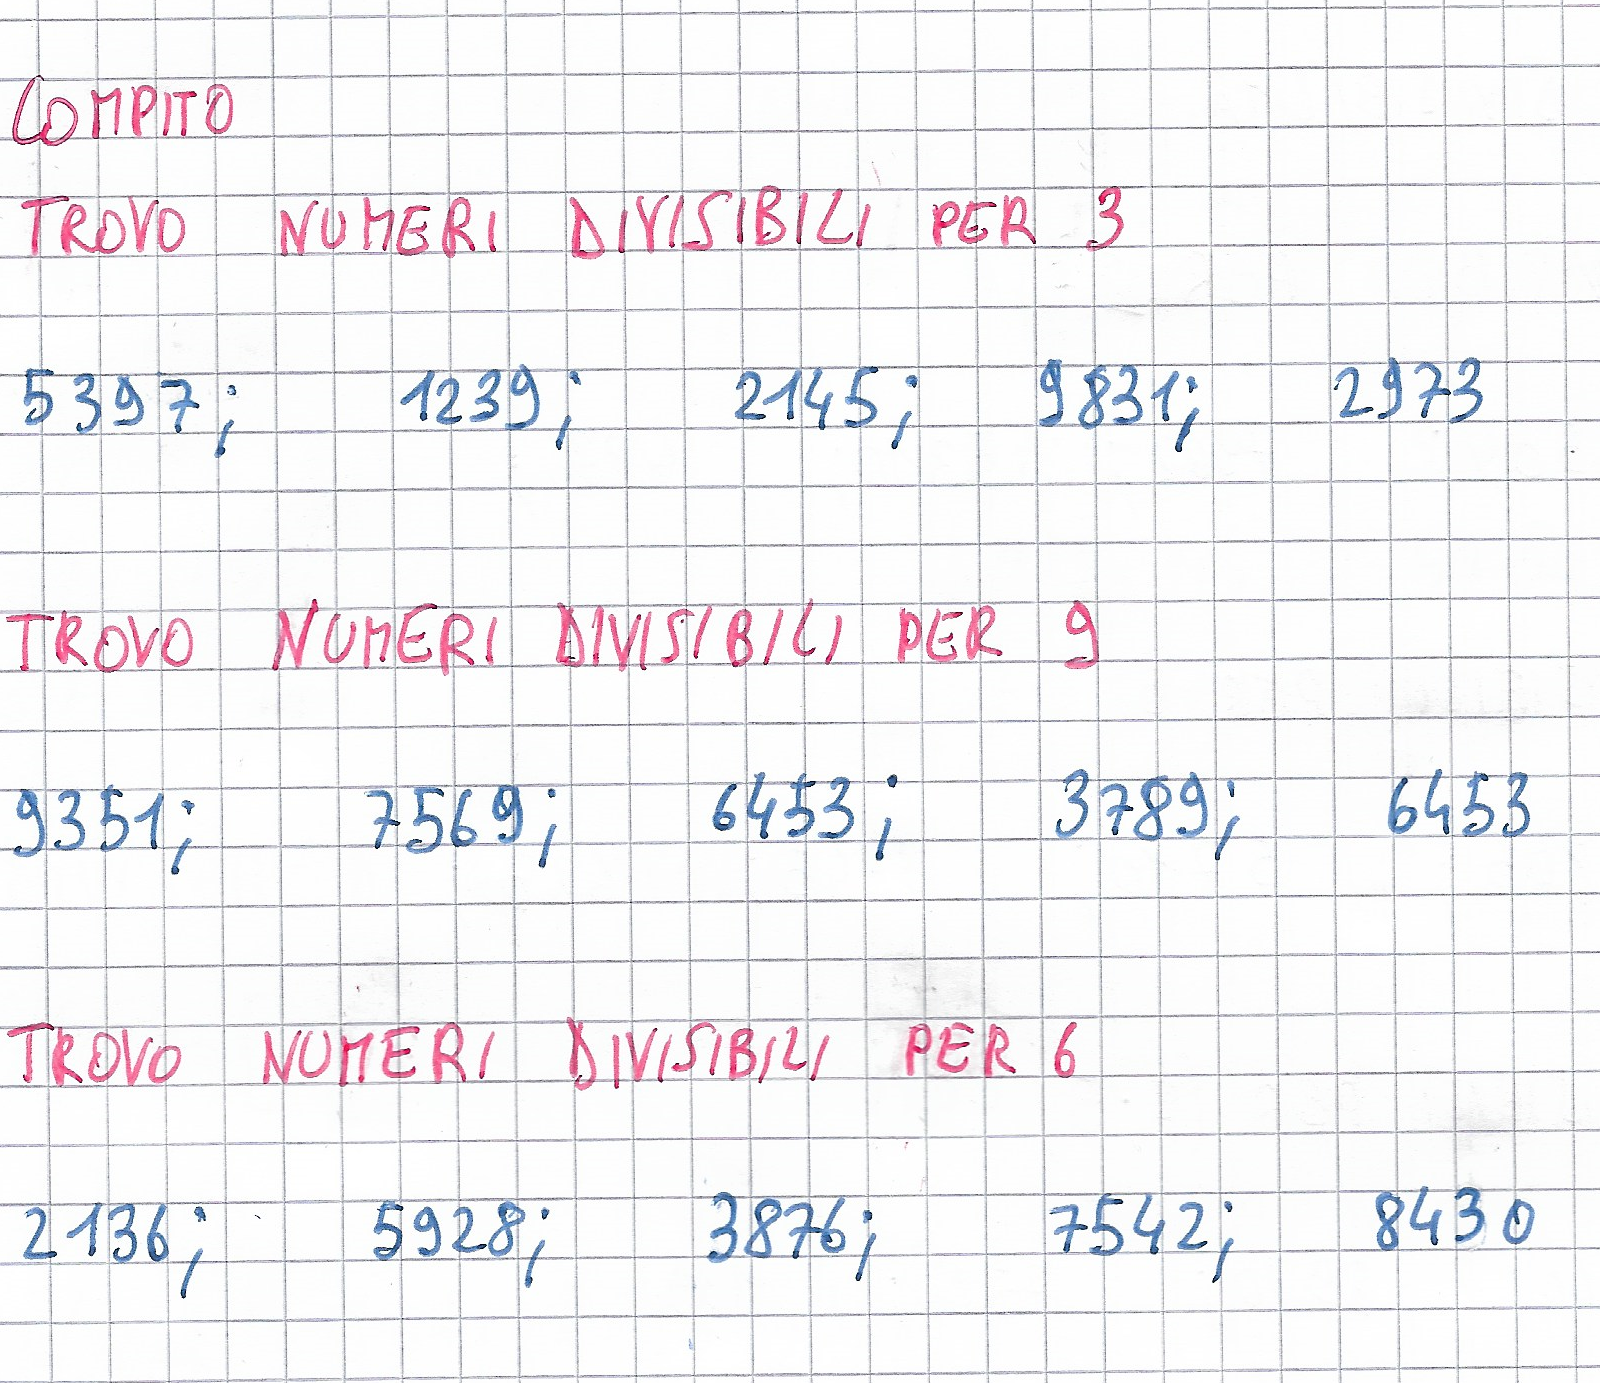 COMPITO
TROVO NUMERI DIVISIBILI PER 3
5397; 1239; 2145; 9831; 2973
TROVO NUMERI DIVISIBILI PER 9
9351; 7569; 6453; 3789; 6453
TROVO NUMERI DIVISIBILI PER 6
2136; 5928; 3876; 7542; 8430